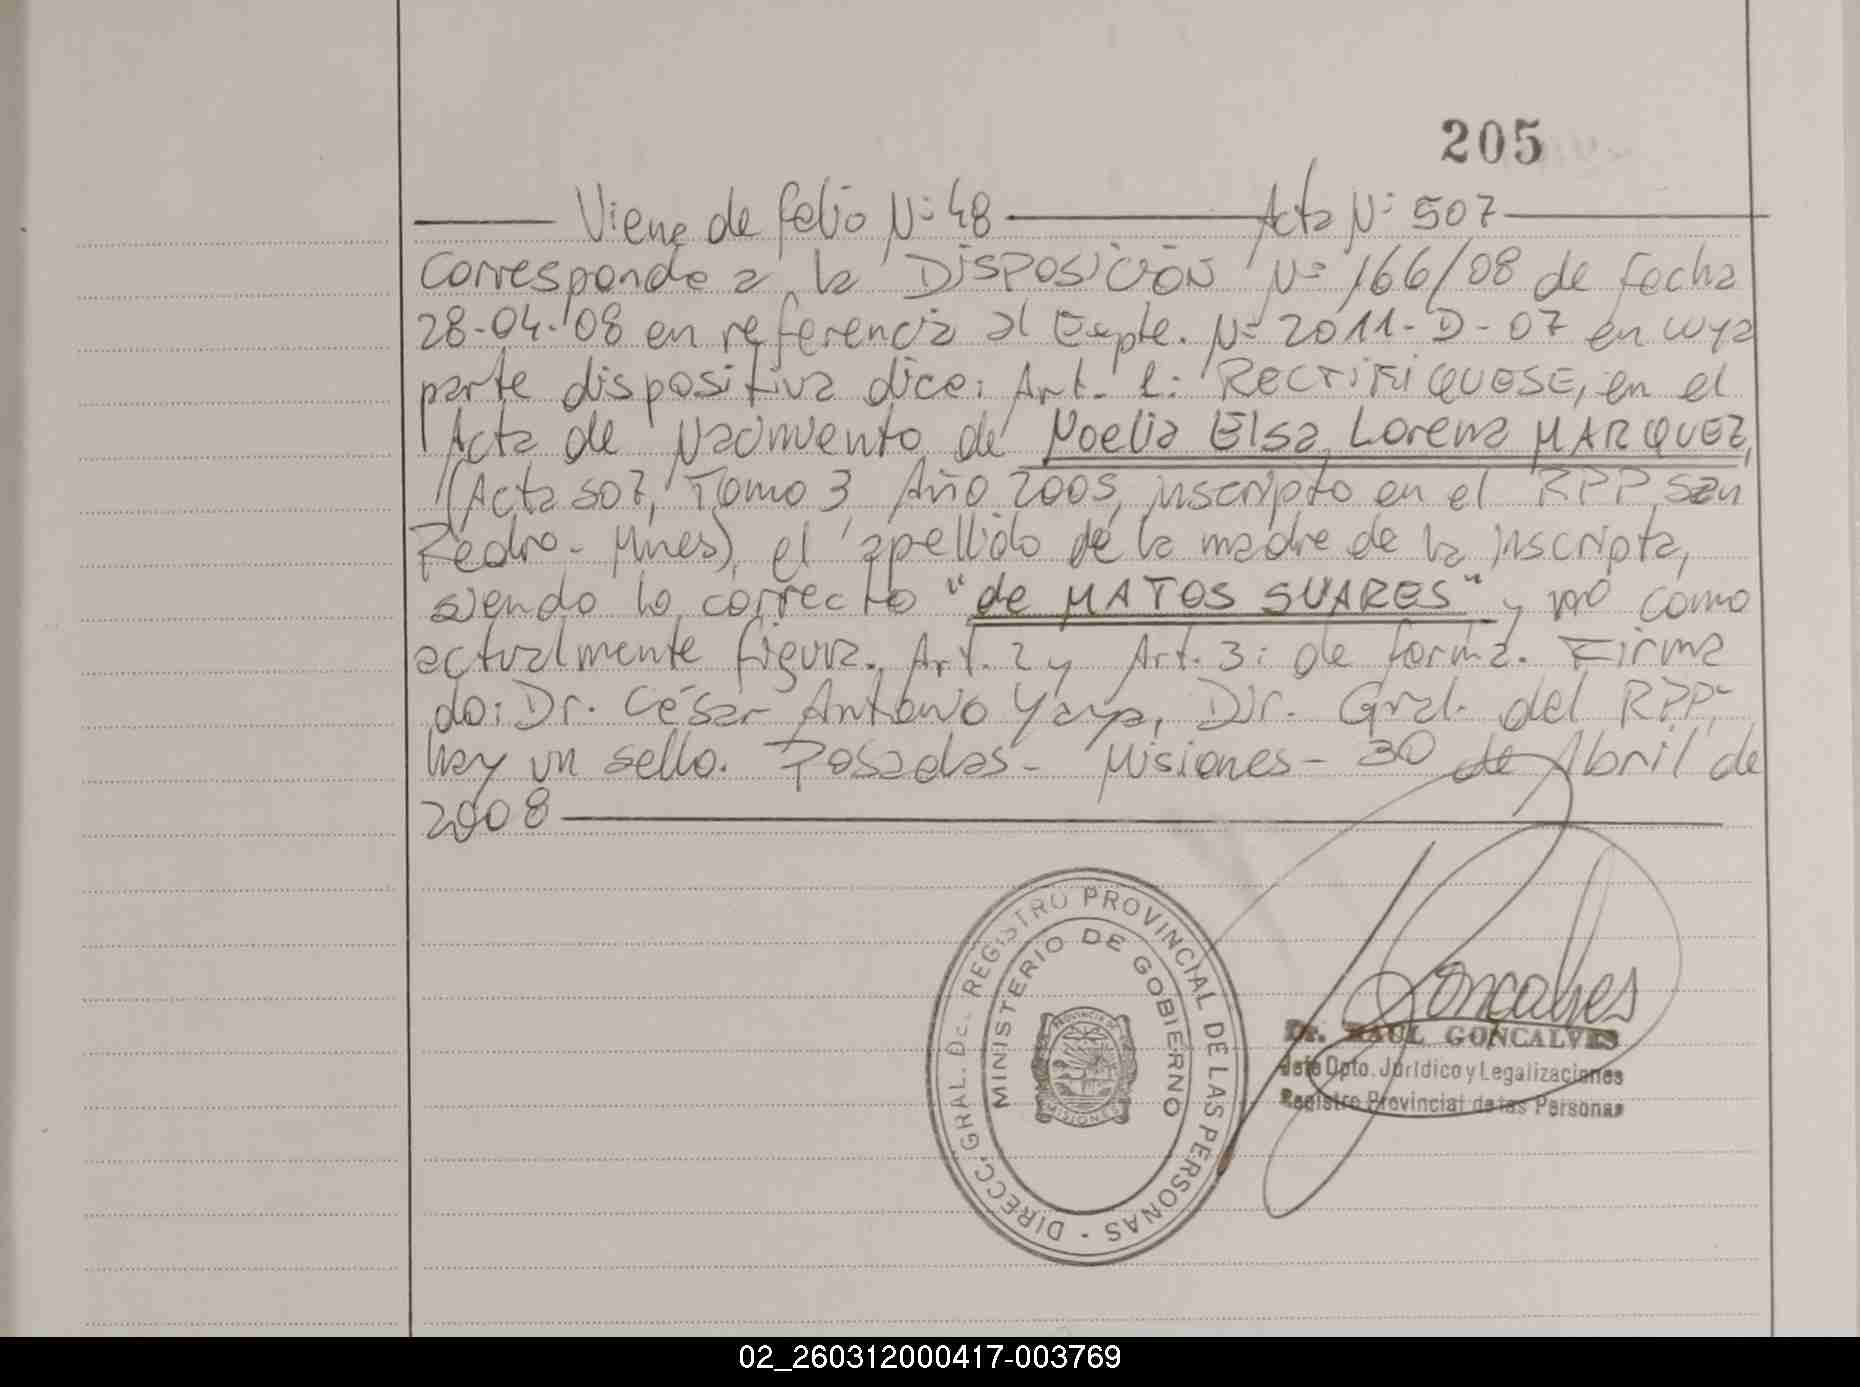 205
Viene de folio N: 48 Acta N: 507
Corresponde a la DISPOSICIÓN Nº 166/08 de fecha
28-04-08 en referencia al Expte. Nº 2011-D-07 en cuya
parte dispositiva dice: Art. 1: RECTIFIQUESE, en el
Acta de Nacimiento de Noelia Elsa Lorena MARQUEZ,
(Acta 507, Tomo 3, Año 2005, inscripto en el RPP San
Pedro - Mnes), el apellido de la madre de la inscripta,
siendo lo correcto "de MATOS SUARES" y no como
actualmente figura. Art. 2 y Art. 3: de forma. Firma
do: Dr. César Antonio Yaya, Dir. Gral. del RPP,
hay un sello. Posadas - Misiones - 30 de Abril de
2008
DIRECC. GRAL. DEL REGISTRO PROVINCIAL DE LAS PERSONAS -
MINISTERIO DE GOBIERNO
PROVINCIA DE
MISIONES
Goncalves
Dr. RAUL GONÇALVES
Jefe Dpto. Jurídico y Legalizaciones
Registro Provincial de las Personas
02_260312000417-003769